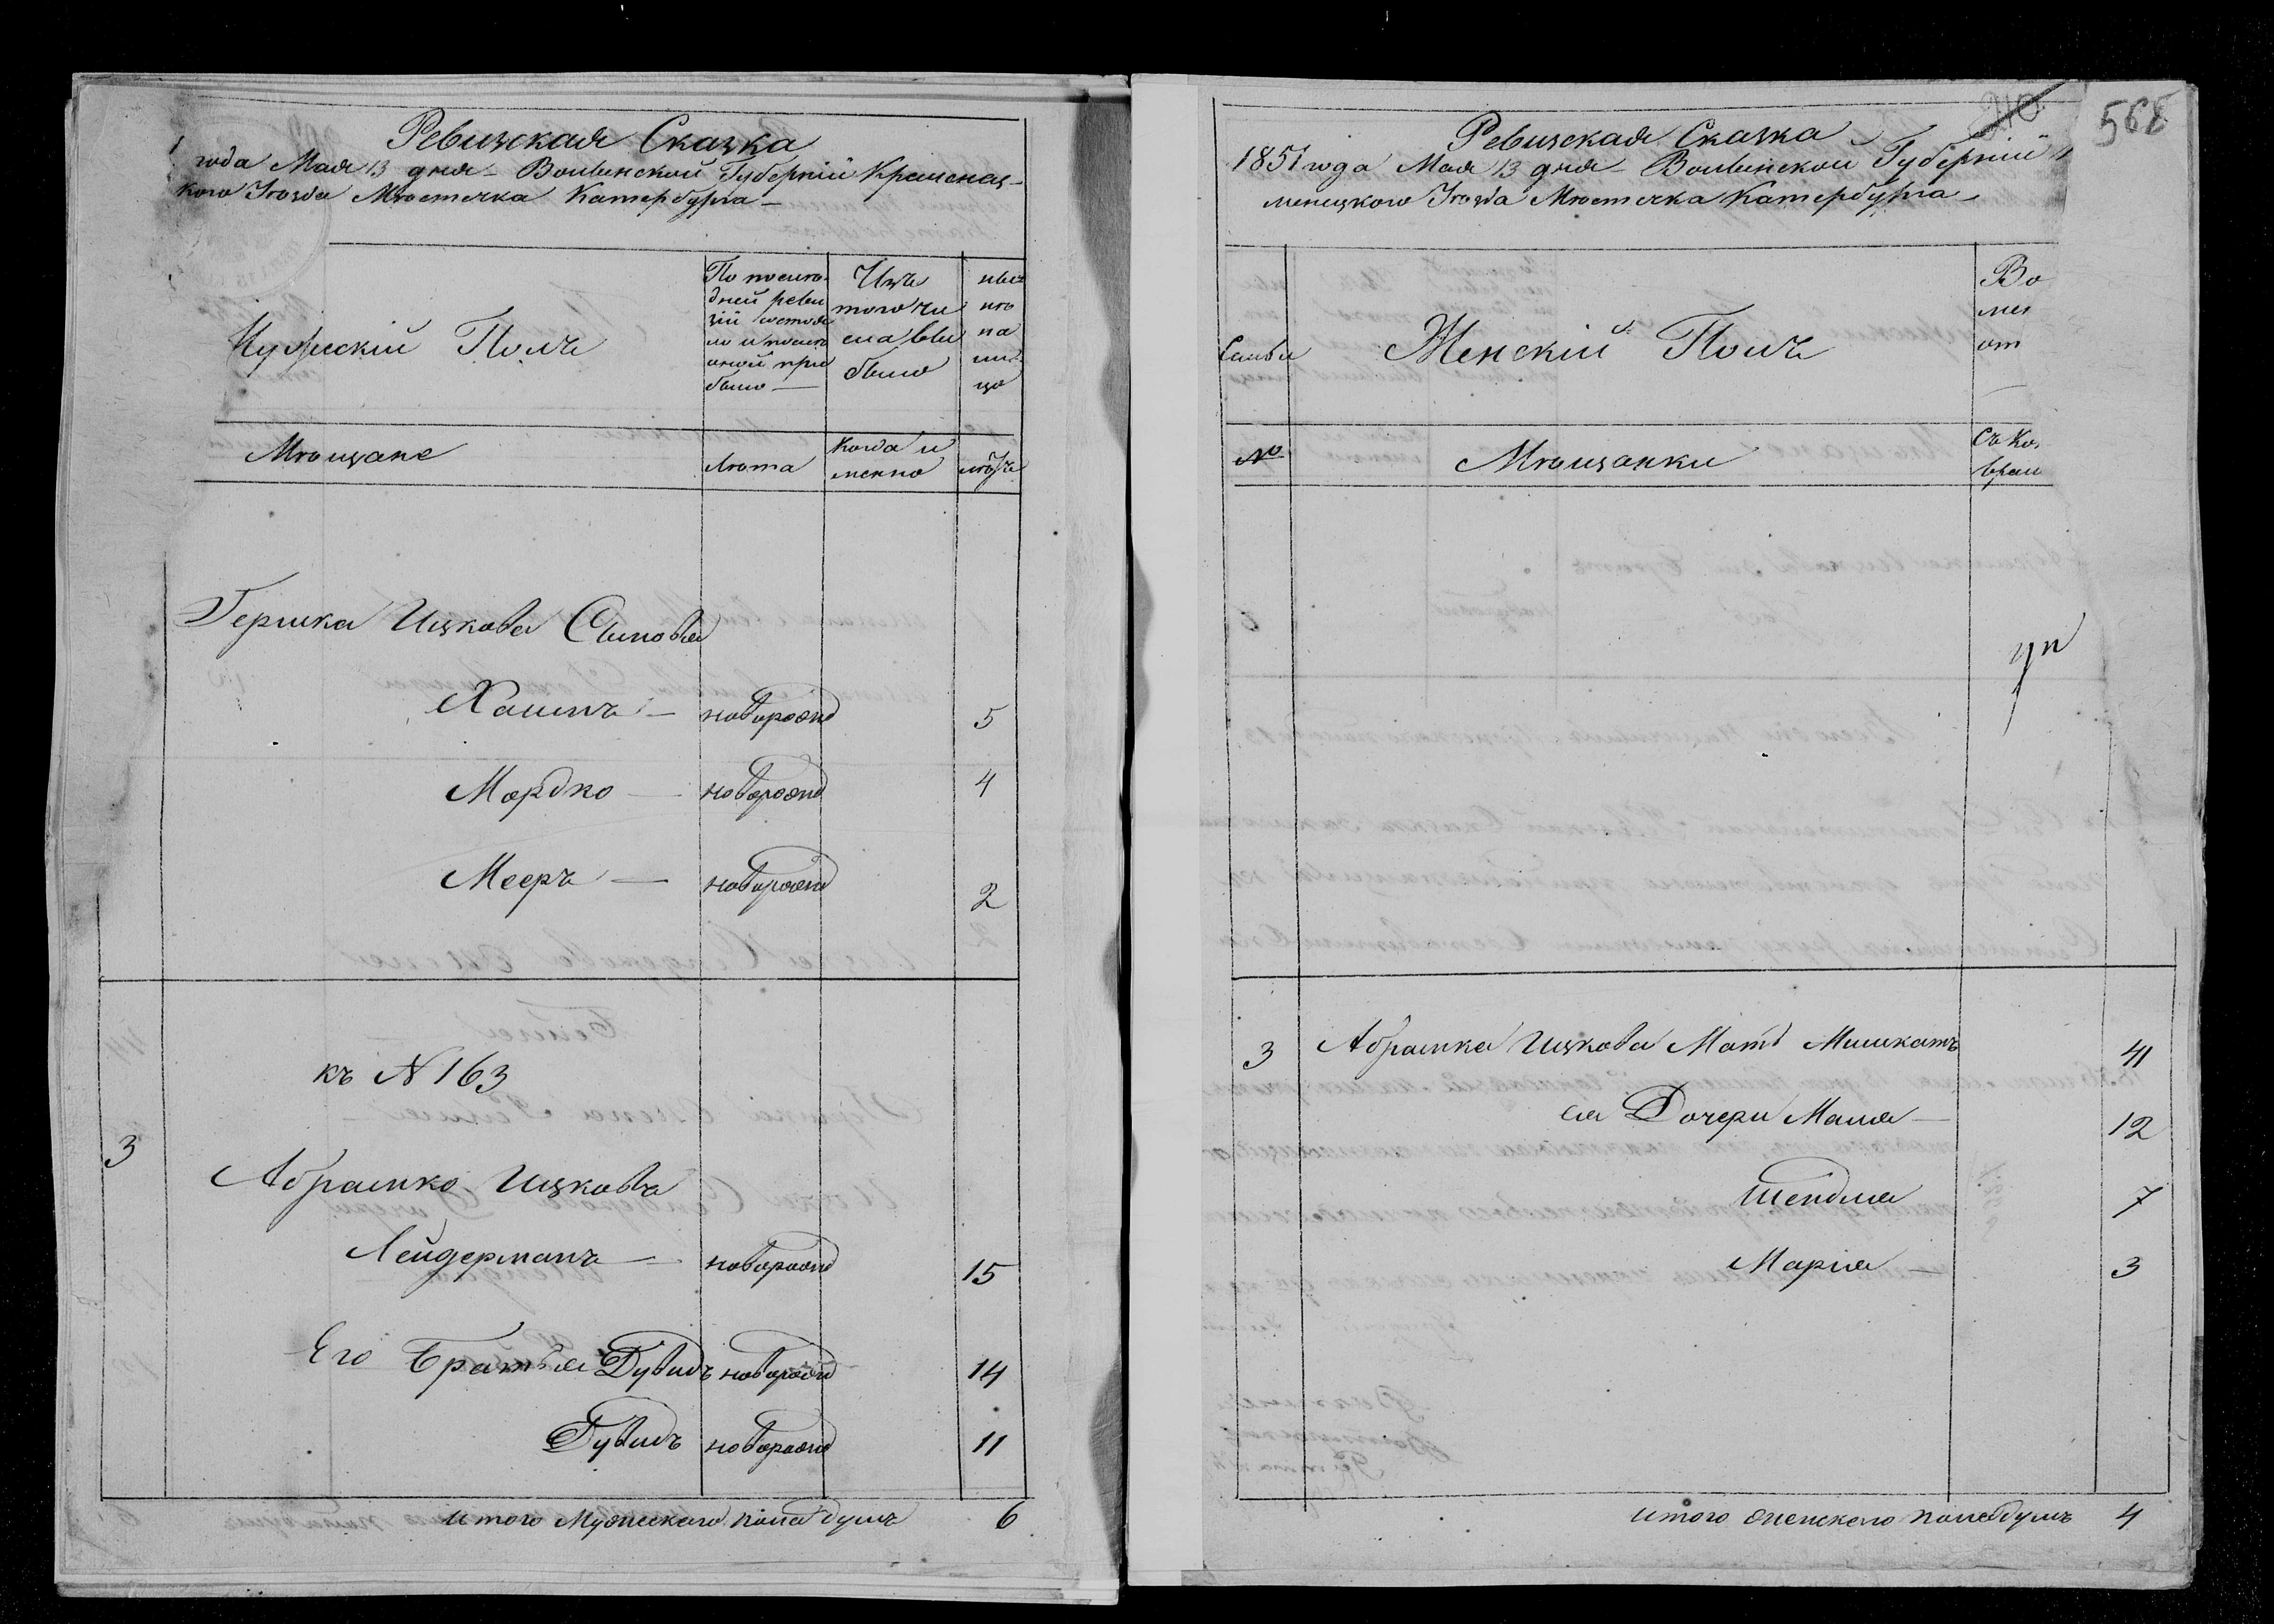 Ревизская Сказка
года Мая 13 дня - Волынской Губерніи Кременец-
кого Уѣзда Мѣстечка Катербурга -
Мужескій Полъ
По послѣ-
дней реви
зіи состоя
ло и послѣ
оной при
было -
Изъ
того чи
сла вы
было
нынѣ
на
ли-
цо
Мѣщане
лѣта
Когда и
менно
лѣтъ
Гершка Ицкова Сыновья
Хаимъ - новорожд 5
Мордко - новорожд 4
Мееръ - новорожд 2
къ N 163
3
Абрамко Ицковъ
Лейдерманъ - новорожд 15
Его Братья Дувидъ новорожд 14
Дувидъ новорожд 11
итого Мужескаго пола душъ 6
568
Ревизская Сказка
1851 года Мая 13 дня - Волынской Губерніи
менецкого Уѣзда Мѣстечка Катербурга -
Семьи
Женскій Полъ
Во
мен
от
№
Мѣщанки
Съ Ко
врем
3 Абрамка Ицкова Мать 41
ея Дочери Маля - 12
Шендля 7
Марія - 3
итого женскаго пола душъ 4